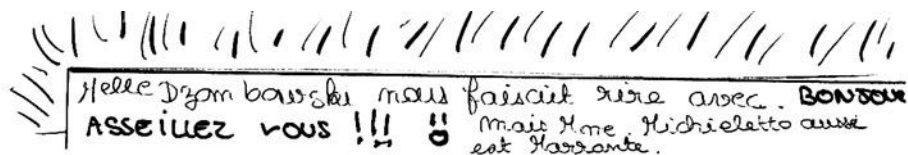 Melle Dzombowski nous faisait rire avec. BONJOUR
ASSEillEZ vous !!!
Mais Mme Michieletto aussi
est Marrante.